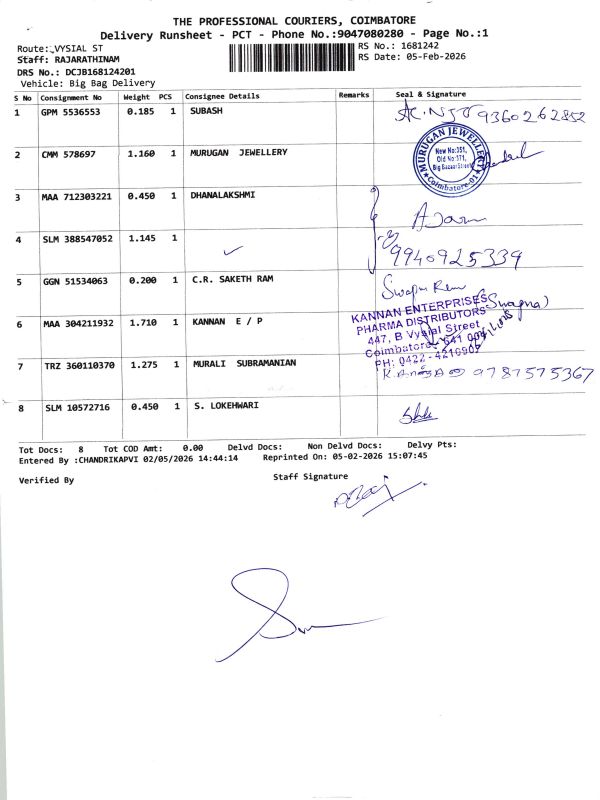 THE PROFESSIONAL COURIERS, COIMBATORE
Delivery Runsheet - PCT - Phone No.:9047080280 - Page No.:1
Route: VYSIAL ST
RS No.: 1681242
Staff: RAJARATHINAM
RS Date: 05-Feb-2026
DRS No.: DCJB168124201
Vehicle: Big Bag Delivery
S No Consignment No Weight PCS Consignee Details Remarks Seal & Signature
1 GPM 5536553 0.185 1 SUBASH 9360262852
2 CMM 578697 1.160 1 MURUGAN JEWELLERY
MURUGAN JEWELLERY
New No:351,
Old No:371,
Big Bazaar Street
Coimbatore-01
3 MAA 712303221 0.450 1 DHANALAKSHMI
4 SLM 388547052 1.145 1
9940925339
5 GGN 51534063 0.200 1 C.R. SAKETH RAM
(Swapna)
6 MAA 304211932 1.710 1 KANNAN E / P
KANNAN ENTERPRISES
PHARMA DISTRIBUTORS
447, B Vysial Street
Coimbatore - 641 001
PH: 0422 - 4216907
7 TRZ 360110370 1.275 1 MURALI SUBRAMANIAN
9787575367
8 SLM 10572716 0.450 1 S. LOKEHWARI
Tot Docs: 8 Tot COD Amt: 0.00 Delvd Docs: Non Delvd Docs: Delvy Pts:
Entered By :CHANDRIKAPVI 02/05/2026 14:44:14 Reprinted On: 05-02-2026 15:07:45
Verified By
Staff Signature